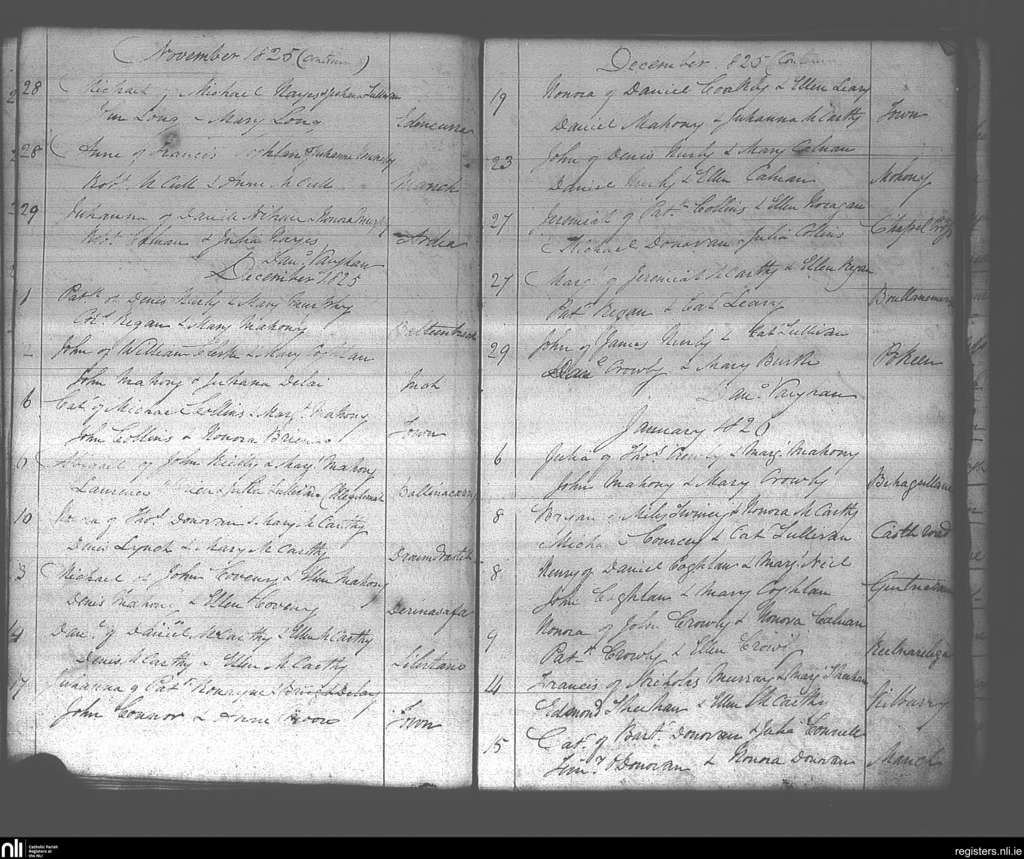 November 1825 (Continu)
28 Michael of Michael Hayes & Johana Sullivan
Tim Long & Mary Long
28 Anne of Francis Coghlan & Juhanna
Robt. McCull & Anne McCull Manch
29 Juhanna of Daniel & Honora Murphy
Robt. Calnan & Julia Hayes Ardea
Danl. Vaughan
December 1825
1 Patk. of Denis Hurly & Mary
Cors. Regan & Mary Mahony
2 John of William & Mary Coghlan
John Mahony & Juhana Inch
6 Cat. of Michael Collins & Margt. Mahony
John Collins & Honora Brien Town
Abigail of John Reilly & Margt. Mahony
Laurence Brien & Julia Sullivan Illegitimate Ballinacarriga
10 of Thos. Donovan & Mary McCarthy
Denis Lynch & Mary McCarthy
13 Michael of John Coveny & Ellen Mahony
Denis Mahony & Ellen Coveny Derinasafa
14 Danl. of Daniel McCarthy & Ellen McCarthy
Denis McCarthy & Ellen McCarthy
17 Juhanna of Patk. Ronayne & Bridgt. Delay
John Connor & Anne Town
December 1825 (Continu
19 Honora of Daniel Coakly & Ellen Leary
Daniel Mahony & Juhanna McCarthy Town
23 John of Denis Hurly & Mary Calnan
Daniel Hurly & Ellen Calnan Mohony
27 Jeremiah of Patk. Collins & Ellen
Michael Donovan & Julia Collins Chapel
27 Margt. of Jeremiah McCarthy & Ellen Regan
Patk. Regan & Cat. Leary
29 John of James Hurly & Cat. Sullivan
Danl. Crowly & Mary Burke
Danl. Vaughan
January 1826
6 Julia of Thos. Crowly & Margt. Mahony
John Mahony & Mary Crowly Behagullane
8 Bryan of Miles Swiney & Honora McCarthy
Michael Courcey & Cat. Sullivan Castle road
8 Henry of Daniel Coghlan & Margt. Neil
John Coghlan & Mary Coghlan
9 Honora of John Crowly & Honora Calnan
Patk. Crowly & Ellen Crowly
14 Francis of Nicholas Murray & Margt. Sheehan
Edmond Sheehan & Ellen McCarthy Kilbarry
15 Cat. of Bart. Donovan & Julia Connell
Timy. Donovan & Honora Donovan Manch
nli
Catholic Parish
Registers at
the NLI
registers.nli.ie